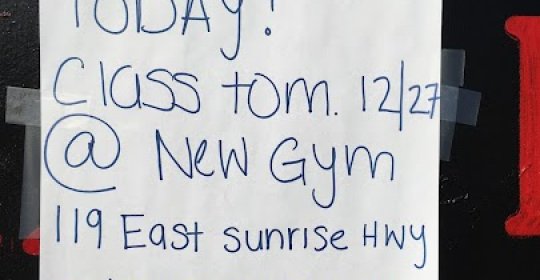 TODAY!
Class tom. 12/27
@ New Gym
119 East sunrise Hwy